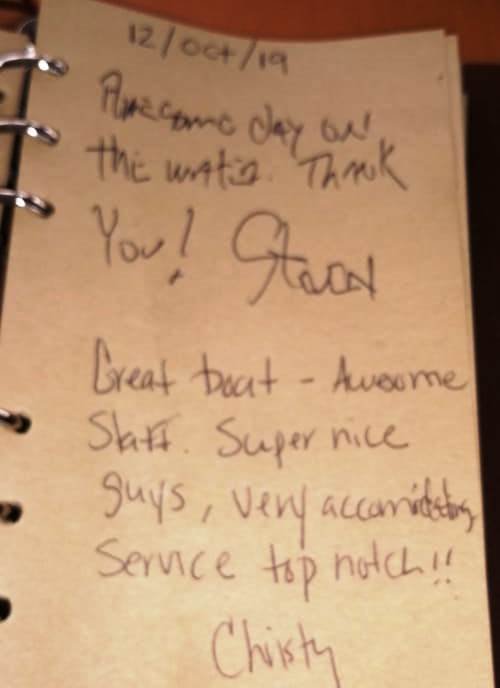 12/Oct/19
Awesome day on
the water. Thank
You! Steven
Great boat - Awesome
Staff. Super nice
guys, very accomidating
Service top notch!!
Christy